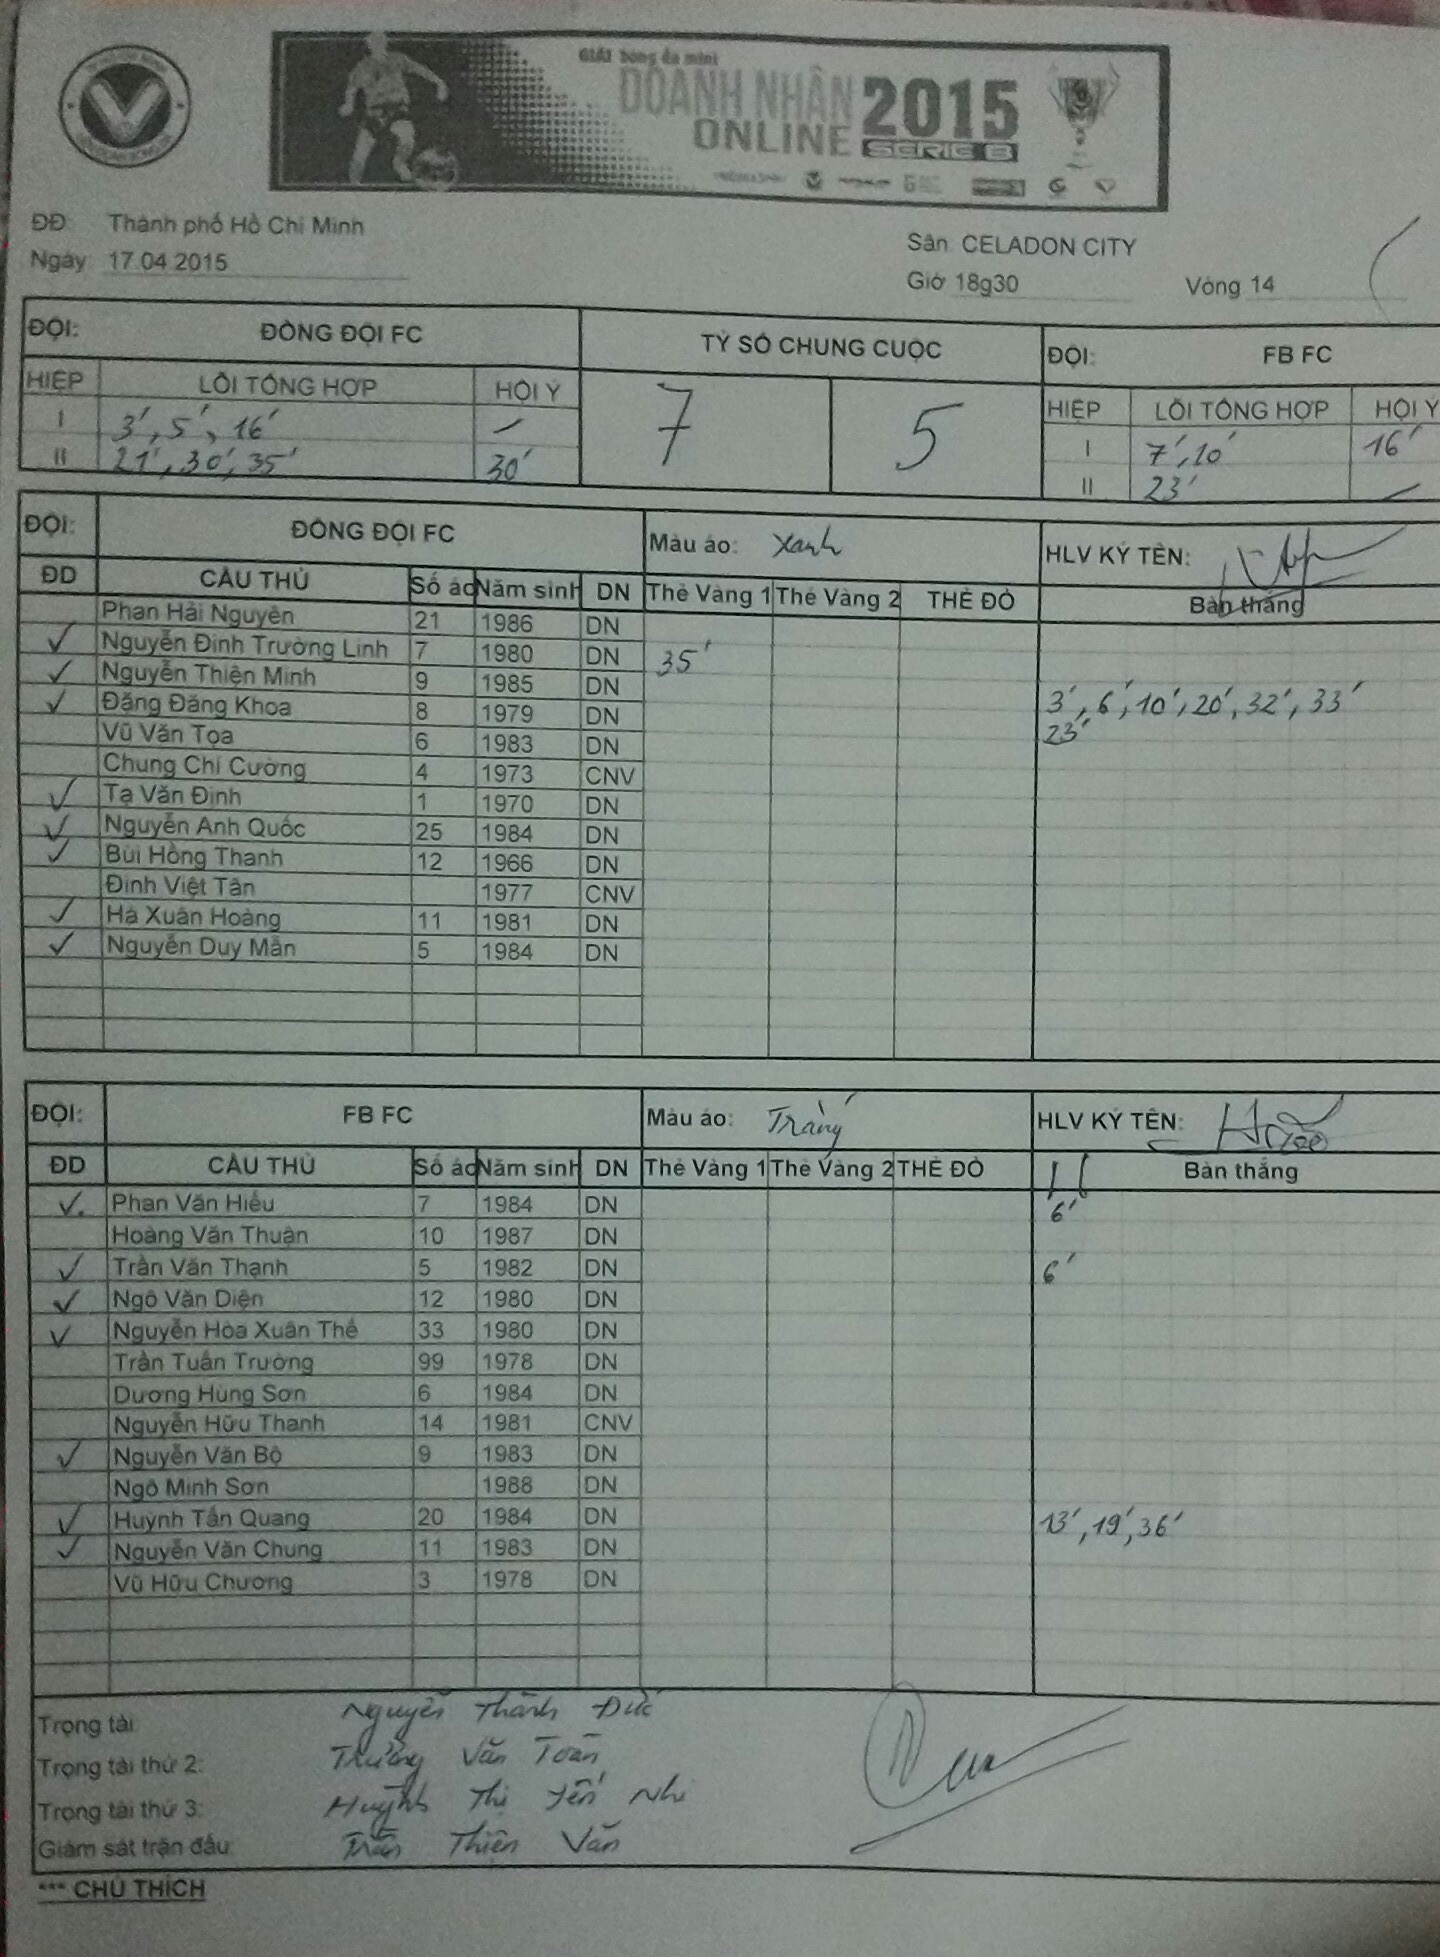 GIẢI bóng đá mini
DOANH NHÂN
ONLINE 2015
SERIE B
ĐĐ: Thành phố Hồ Chí Minh
Ngày 17.04.2015
Sân CELADON CITY
Giờ 18g30 Vòng 14
ĐỘI: ĐỒNG ĐỘI FC TỶ SỐ CHUNG CUỘC ĐỘI: FB FC
HIỆP LỖI TỔNG HỢP HỘI Ý 7 5 HIỆP LỖI TỔNG HỢP HỘI Ý
I 3', 5', 16' - I 7', 10' 16'
II 21', 30', 35' 30' II 23' -
ĐỘI: ĐỒNG ĐỘI FC Màu áo: Xanh HLV KÝ TÊN:
ĐD CẦU THỦ Số áo Năm sinh DN Thẻ Vàng 1 Thẻ Vàng 2 THẺ ĐỎ Bàn thắng
Phan Hải Nguyên 21 1986 DN
✓ Nguyễn Đình Trường Linh 7 1980 DN 35'
✓ Nguyễn Thiện Minh 9 1985 DN
✓ Đặng Đăng Khoa 8 1979 DN 3', 6', 10', 20', 32', 33'
Vũ Văn Tọa 6 1983 DN 23'
Chung Chí Cường 4 1973 CNV
✓ Tạ Văn Định 1 1970 DN
✓ Nguyễn Anh Quốc 25 1984 DN
✓ Bùi Hồng Thanh 12 1966 DN
Đinh Việt Tân 1977 CNV
✓ Hà Xuân Hoàng 11 1981 DN
✓ Nguyễn Duy Mẫn 5 1984 DN
ĐỘI: FB FC Màu áo: Trắng HLV KÝ TÊN:
ĐD CẦU THỦ Số áo Năm sinh DN Thẻ Vàng 1 Thẻ Vàng 2 THẺ ĐỎ Bàn thắng
✓ Phan Văn Hiếu 7 1984 DN 6'
Hoàng Văn Thuận 10 1987 DN
✓ Trần Văn Thạnh 5 1982 DN 6'
✓ Ngô Văn Diện 12 1980 DN
✓ Nguyễn Hòa Xuân Thế 33 1980 DN
Trần Tuấn Trường 99 1978 DN
Dương Hùng Sơn 6 1984 DN
Nguyễn Hữu Thanh 14 1981 CNV
✓ Nguyễn Văn Bộ 9 1983 DN
Ngô Minh Sơn 1988 DN
✓ Huỳnh Tấn Quang 20 1984 DN 13', 19', 36'
✓ Nguyễn Văn Chung 11 1983 DN
Vũ Hữu Chương 3 1978 DN
Trọng tài Nguyễn Thành Đức
Trọng tài thứ 2: Trường Văn Toàn
Trọng tài thứ 3: Huỳnh Thị Yến Nhi
Giám sát trận đấu: Trần Thiện Văn
*** CHÚ THÍCH